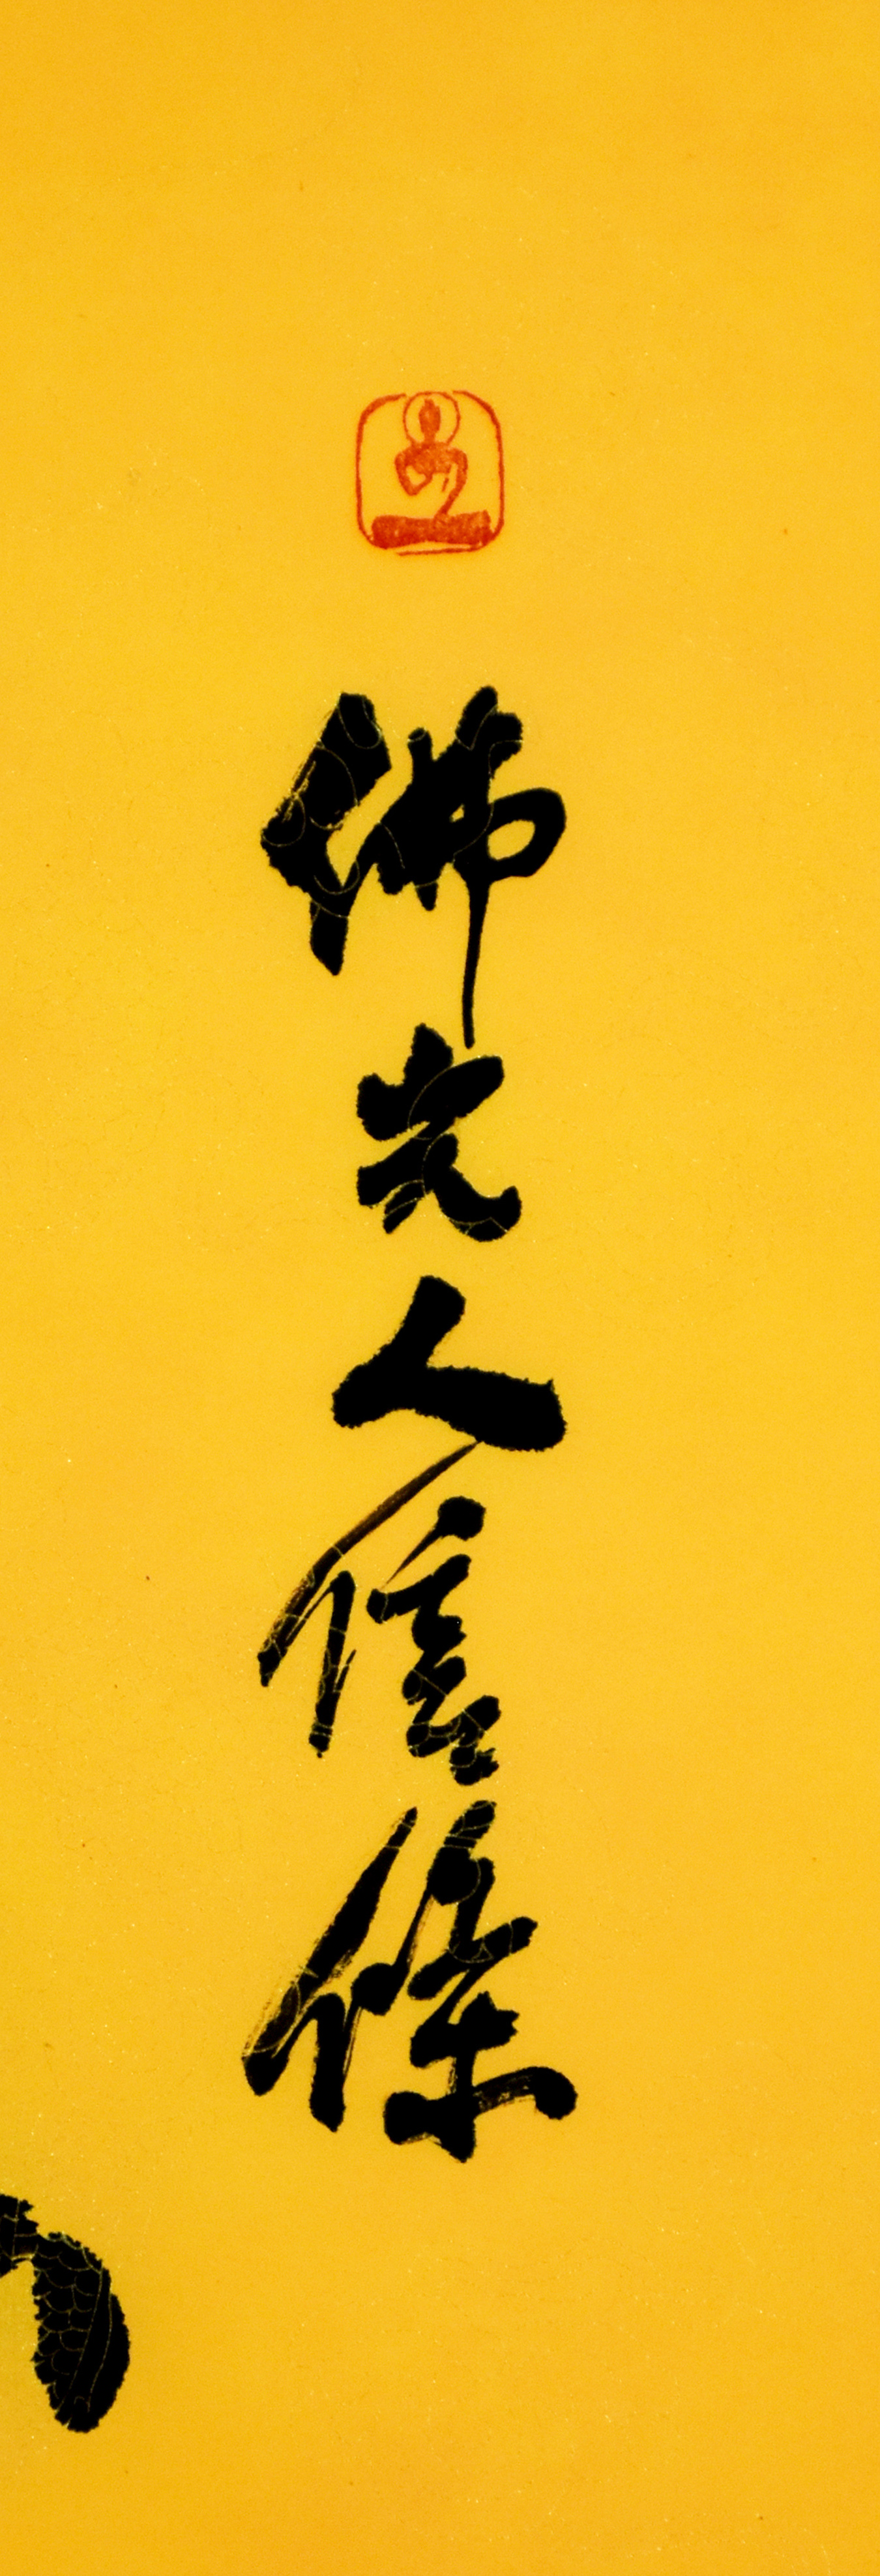 佛光人信條